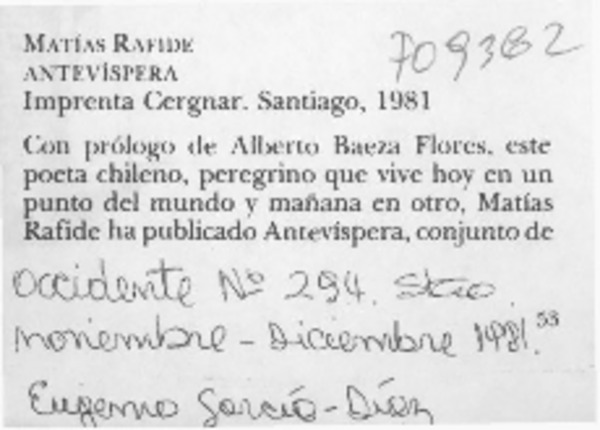 MATÍAS RAFIDE
709382
ANTEVÍSPERA
Imprenta Cergnar. Santiago, 1981
Con prólogo de Alberto Baeza Flores, este
poeta chileno, peregrino que vive hoy en un
punto del mundo y mañana en otro, Matías
Rafide ha publicado Antevíspera, conjunto de
Occidente Nº 294. Stgo.
noviembre - Diciembre 1981. 53
Eugenio García-Díaz